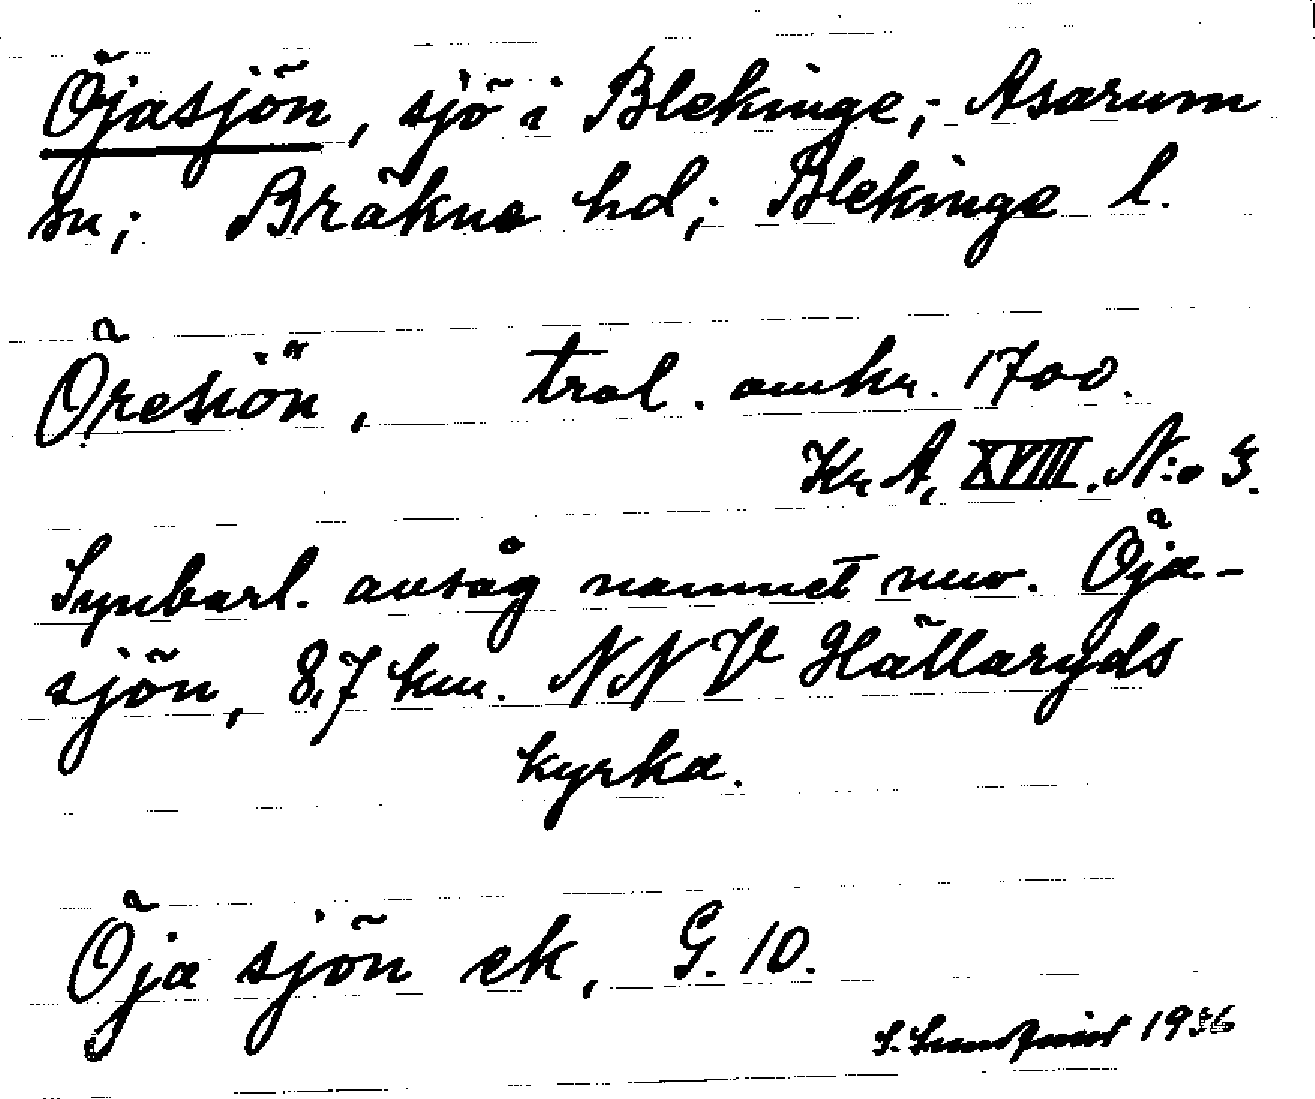 Öjasjön, sjö i Blekinge; Asarum
sn; Bräkne hd; Blekinge l.
Öresiön, trol. omkr. 1700.
Kr A, XVIII. N:o 3.
Synbarl. avsåg namnet nuv. Öja-
sjön, 8,7 km. NNV Hällaryds
kyrka.
Öja sjön ek, G. 10.
S. Lundqvist 1936